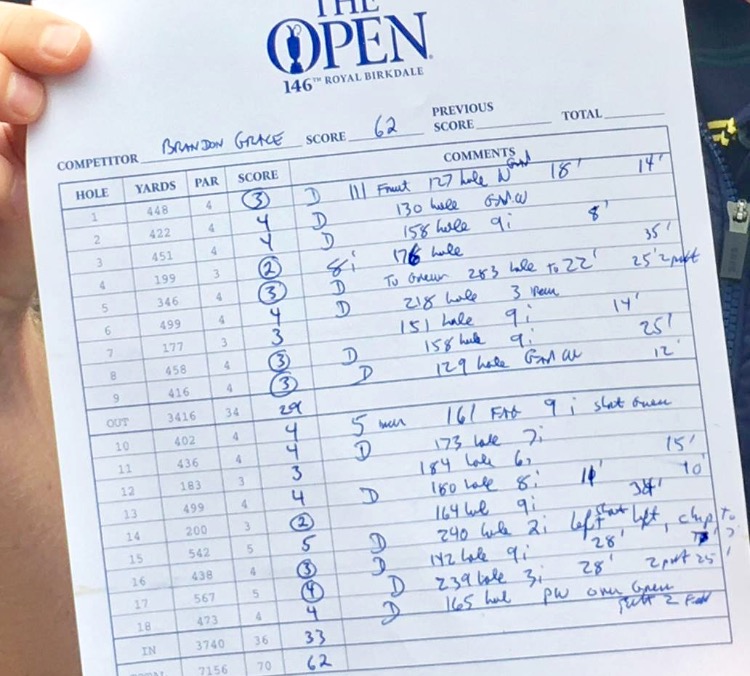 THE
OPEN
146TH ROYAL BIRKDALE
COMPETITOR BRANDON GRACE SCORE 62 PREVIOUS SCORE TOTAL
HOLE YARDS PAR SCORE COMMENTS
1 448 4 3 D 111 Front 127 hole 18' 14'
2 422 4 4 D 130 hole
3 451 4 4 D 158 hole 9i 8'
4 199 3 2 8i 176 hole 35'
5 346 4 3 D To Green 283 hole to 22' 25' 2 putt
6 499 4 4 D 218 hole 3 iron
7 177 3 3 151 hole 9i 14'
8 458 4 3 D 158 hole 9i 25'
9 416 4 3 D 129 hole 12'
OUT 3416 34 29
10 402 4 4 5 iron 161 9i short green
11 436 4 4 D 173 hole 7i
12 183 3 3 184 hole 6i 15'
13 499 4 4 D 180 hole 8i 10'
14 200 3 2 164 hole 9i
15 542 5 5 D 240 hole 2i left short left, chip to
16 438 4 3 D 142 hole 9i 28'
17 567 5 4 D 239 hole 3i 28' 2 putt 25'
18 473 4 4 D 165 hole PW over Green putt 2
IN 3740 36 33
TOTAL 7156 70 62